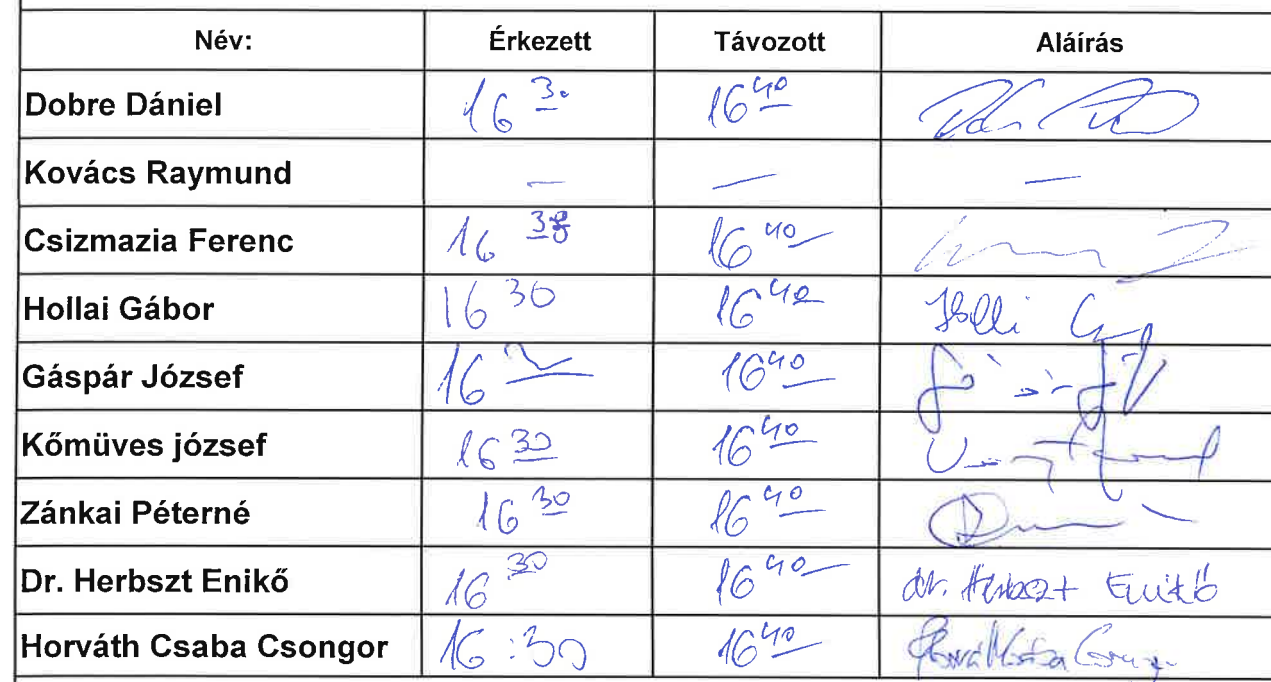 Név: Érkezett Távozott Aláírás
Dobre Dániel 16 30 16 40
Kovács Raymund — — —
Csizmazia Ferenc 16 16 40
Hollai Gábor 16 30 16 40
Gáspár József 16 16 40
Kőmüves józsef 16 30 16 40
Zánkai Péterné 16 30 16 40
Dr. Herbszt Enikő 16 30 16 40 dr. Herbszt Enikő
Horváth Csaba Csongor 16:30 16 40